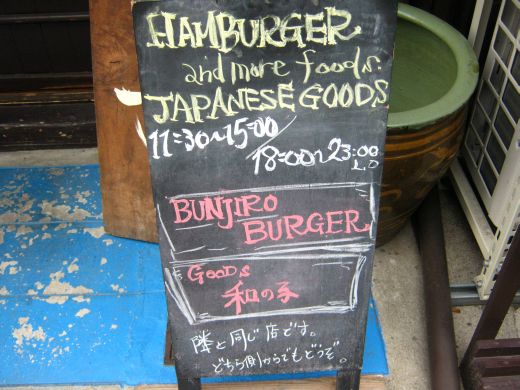 HAMBURGER
and more foods.
JAPANESE GOODS
11:30~15:00
18:00~23:00
L.O
BUNJIRO
BURGER
GOODS
和の子
隣と同じ店です。
どちら側からでもどうぞ。